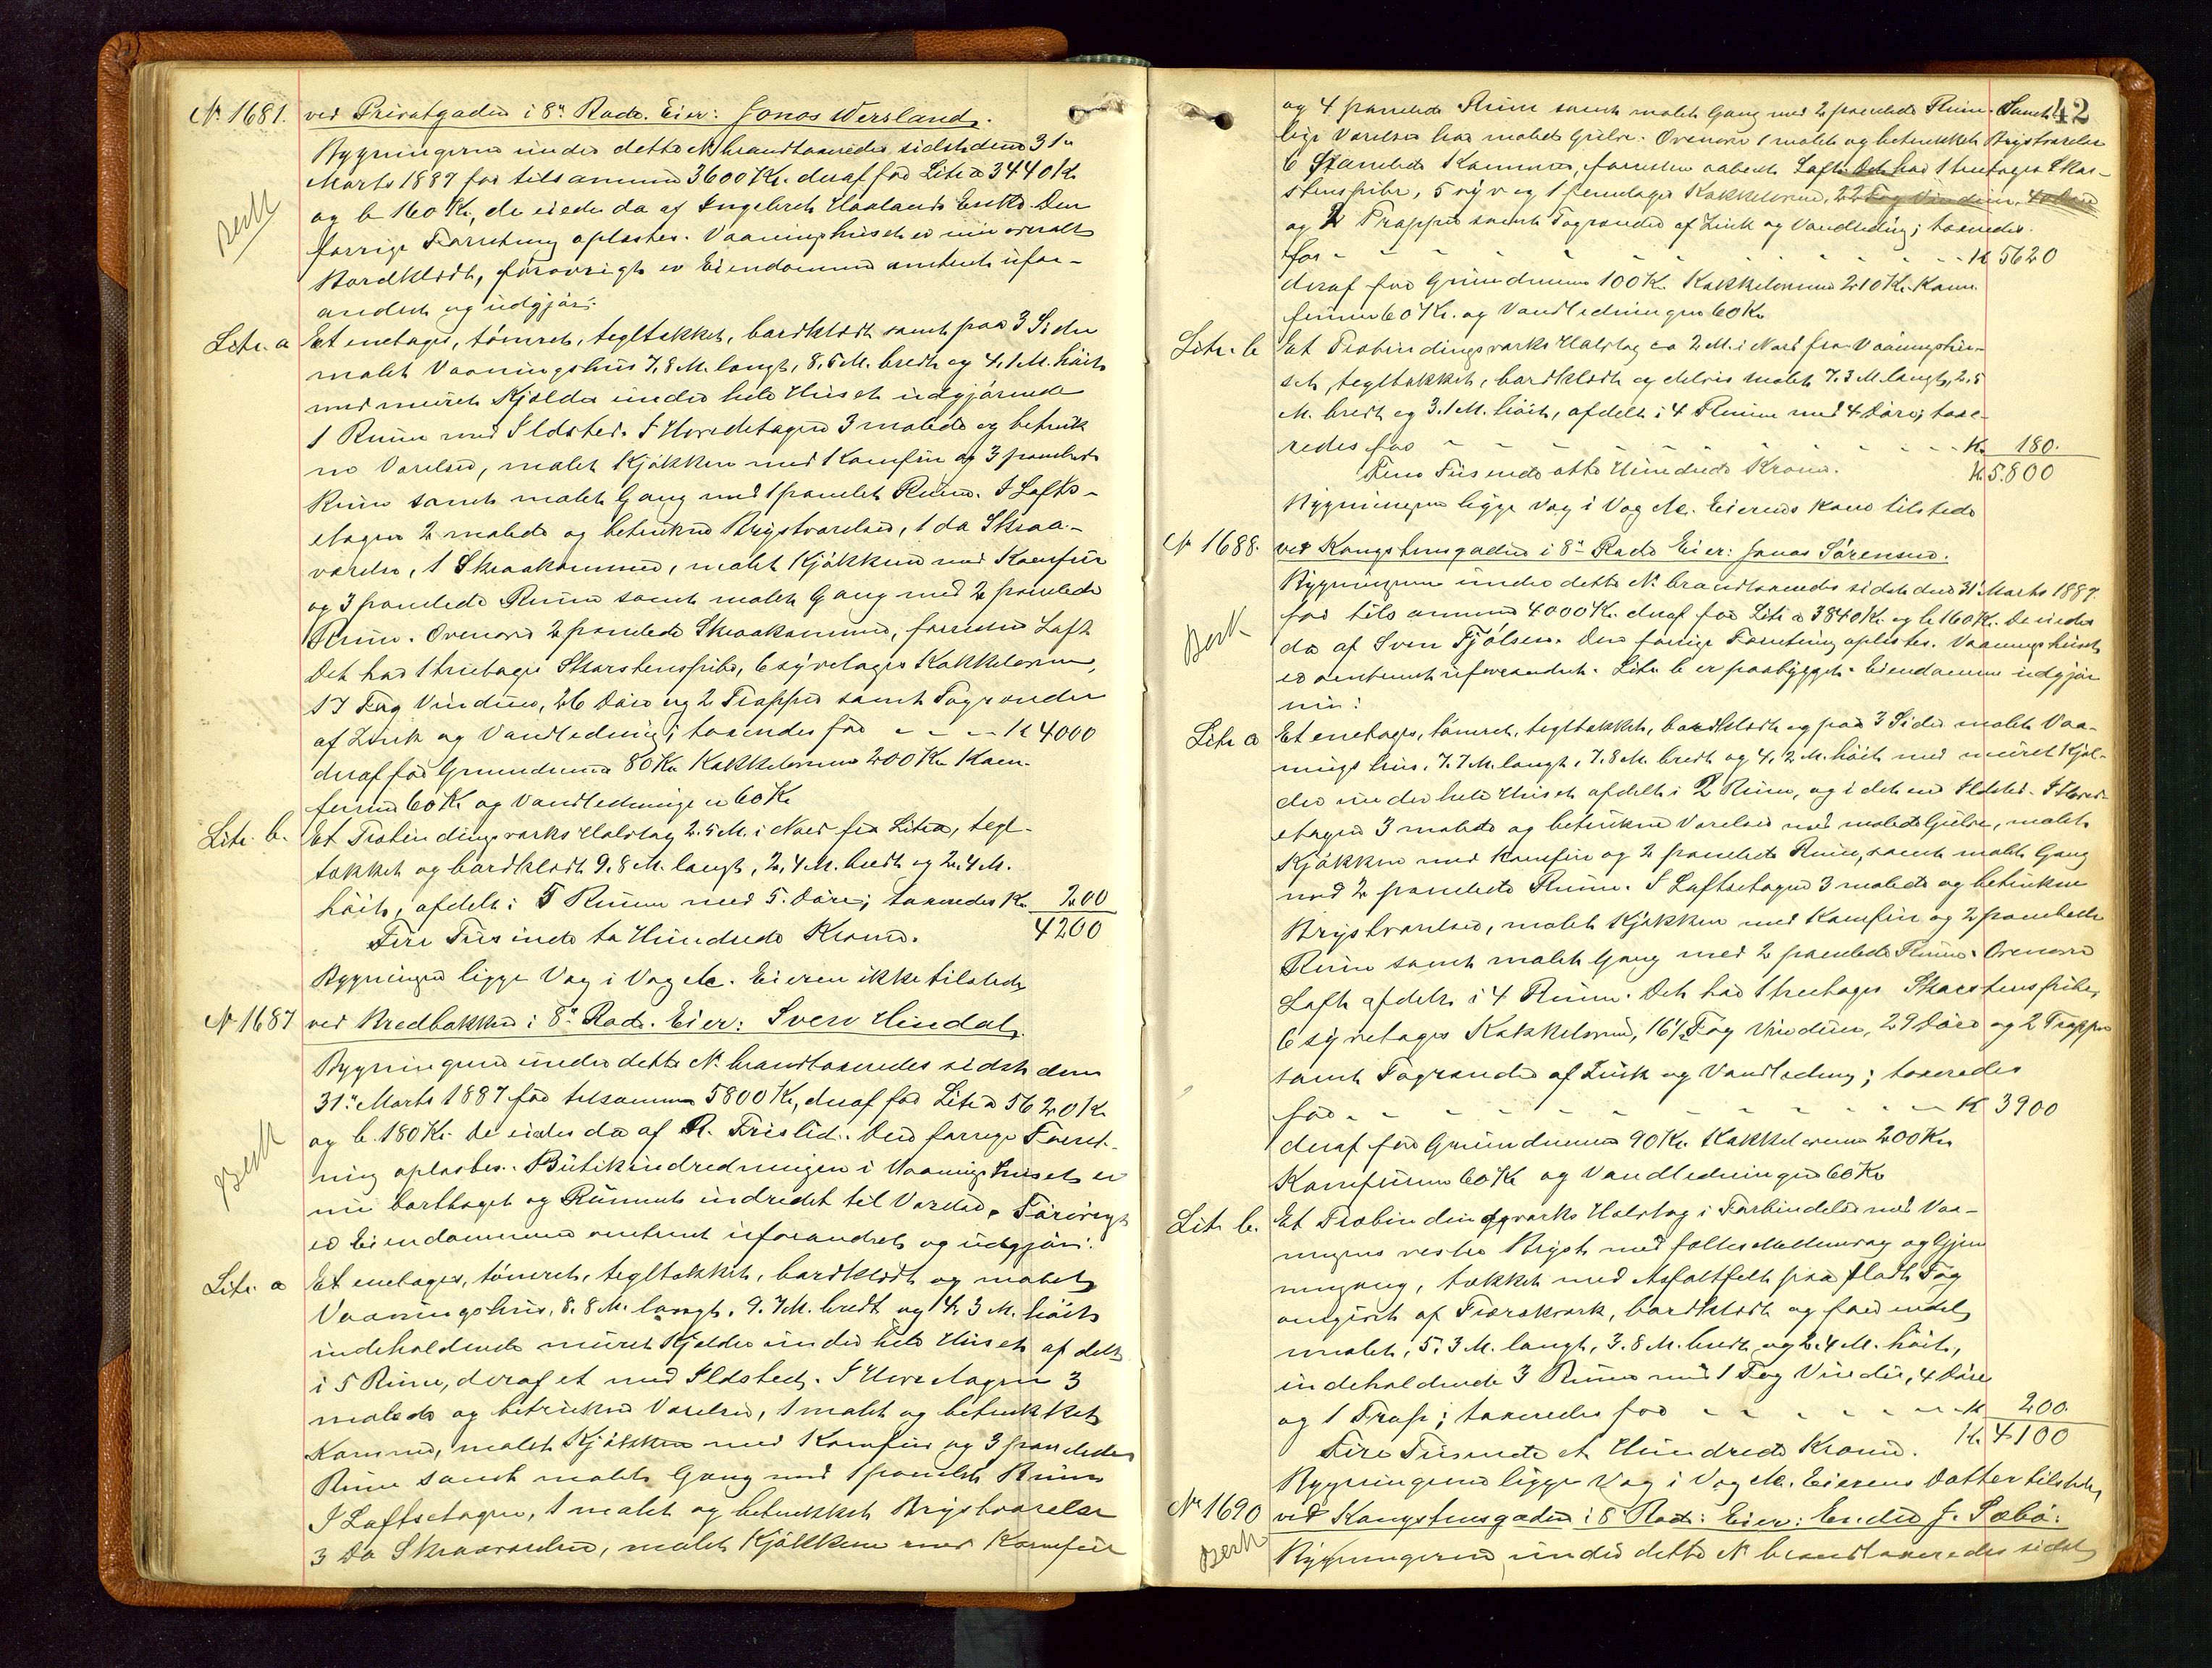 No 1681. ved Privatgaden i 8de Rode. Eier: Jonas Wersland.
Bygningerne under dette No brandtaxeredes sidst den 31te
Marts 1887 for tilsammen 3600 Kr. deraf for Litr a 3440 Kr.
og b 160 Kr, de eiedes da af Ingebret Haalands Enke. Den
Besk
forrige Forretning oplæstes. Vaaningshuset er nu overalt
Bordklædt, forøvrigt er Eiendommen omtrent ufor-
andret og udgjør:
Litr. a Et enetages, tømret, tegltækket, bordklædt samt paa 3 Sider
malet Vaaningshus 7,8 M. langt, 8,5 M. bredt og 4,1 M. høit
med muret Kjelder under hele Huset udgjørende
1 Rum med Ildsted. I Hovedetagen 3 malede og betruk
ne Værelser, malet Kjøkken med Komfur og 3 panelede
Rum samt malet Gang med 1 panelet Rum. I Lofts-
etagen 2 malede og betrukne Brystværelser, 1 do Skraa-
værelse, 1 Skraakammer, malet Kjøkken med Komfur
og 3 panelede Rum samt malet Gang med 2 panelede
Rum. Ovenover 2 panelede Skraakammer, forresten Loft
Det har 1 treetages Skorstenspibe, 6 syvetages Kakkelovne,
17 Fag Vinduer, 26 Døre og 2 Trapper samt Tagrender
af Zink og Vandledning; taxeredes for - - - - K 4000
deraf for Grundmuren 80 Kr. Kakkelovnene 200 Kr. Kom-
furene 60 Kr. og Vandledningen 60 Kr.
Litr. b. Et Træbindingsværks Halvtag 2.5 M. i Nord fra Litr a, tegl-
tækket og bordklædt 9.8 M. langt, 2,4 M. bredt og 2,4 M.
høit, afdelt i 5 Rum med 5 Døre; taxeredes Kr. 200
Fire Tusinde to Hundrede Kroner. 4200
Bygningen ligge Væg i Væg etc. Eieren ikke tilstede
No 1687 ved Bredbakken i 8de Rode. Eier: Sven Hindal.
Bygningerne under dette No brandtaxeredes sidst den
31te Marts 1887 for tilsammen 5800 Kr, deraf for Litr a 5620 K
og b. 180 Kr. De eiedes da af R. Frislid. Den forrige Forret-
Besk
ning oplæstes. Butikindredningen i Vaaningshuset er
nu borttaget og Rummet indredet til Værelse. Forøvrigt
er Eiendommen omtrent uforandret og udgjør:
Litr. a Et enetages, tømret, tegltækket, bordklædt og malet
Vaaningshus, 8.8 M. langt, 9.7 M. bredt og 4.3 M. høit
indeholdende muret Kjelder under hele Huset afdelt
i 5 Rum, deraf et med Ildsted. I Hovedetagen 3
malede og betrukne Værelser, 1 malet og betrukket
Kammer, malet Kjøkken med Komfur og 3 panelede
Rum samt malet Gang med 1 panelet Rum
I Loftsetagen, 1 malet og betrukket Brystværelse
3 Do Skraaværelser, malet Kjøkken med Komfur
42
og 4 panelede Rum samt malet Gang med 2 panelede Rum. Samt
lige Værelser har malede Gulve. Ovenover 1 malet og betrukket Brystværelse
6 panelede Kammer, forresten aabent Loft. Det har 1 treetages Skor-
stenspibe, 5 syv og 1 femetages Kakkelovne, 22 Fag Vinduer,
og 2 Trapper samt Tagrender af Zink og Vandledning; taxeredes
for - - - - - - - - K 5620
deraf for Grundmuren 100 Kr. Kakkelovnene 210 Kr. Kom-
furene 60 Kr. og Vandledningen 60 Kr.
Litr. b Et Træbindingsværks Halvtag ca 2 M. i Nord fra Vaaningshu-
set, tegltækket, bordklædt og delvis malet 7.3 M. langt, 2,5
M. bredt og 3.1 M. høit, afdelt i 4 Rum med 4 Døre; taxe-
redes for - - - - - - - - Kr. 180.
Fem Tusinde otte Hundrede Kroner. K. 5.800
Bygningerne ligge Væg i Væg etc. Eierens Kone tilstede
No 1688. ved Kongstensgaden i 8de Rode Eier: Jonas Sørensen.
Bygningerne under dette No brandtaxeredes sidst den 31te Marts 1887.
for tilsammen 4000 Kr. deraf for Litr a 3840 Kr. og b 160 Kr. De eiedes
Besk
da af Sven Tjølsen. Den forrige Forretning oplæstes. Vaaningshuset
er omtrent uforandret. Litr. b er paabygget. Eiendommen udgjør
nu:
Litr a Et enetages, tømret, tegltækket, bordklædt og paa 3 Sider malet Vaa-
ningshus, 7.7 M. langt, 7.8 M. bredt og 4,2 M. høit med muret Kjel-
der under hele Huset afdelt i 2 Rum, og i det ene Ildsted. I Hoved-
etagen 3 malede og betrukne Værelser med malede Gulve, malet
Kjøkken med Komfur og 2 panelede Rum, samt malet Gang
med 2 panelede Rum. I Loftsetagen 3 malede og betrukne
Brystværelser, malet Kjøkken med Komfur og 2 panelede
Rum samt malet Gang med 2 panelede Rum. Ovenover
Loft afdelt i 4 Rum. Det har 1 treetages Skorstenspibe,
6 syvetages Kakkelovne, 16½ Fag Vinduer, 29 Døre og 2 Trapper
samt Tagrender af Zink og Vandledning; taxeredes
for - - - - - - - - K 3900
deraf for Grundmuren 90 Kr. Kakkelovnene 200 Kr.
Komfurene 60 Kr. og Vandledningen 60 Kr.
Litr b. Et Træbindingsværks Halvtag i Forbindelse med Vaa-
ningens vestre Bryst med fælles Mellemvæg og Gjen
nemgang, tækket med Asfaltfilt paa fladt Tag
omgivet af Træværk, bordklædt og for en del
malet, 5.3 M. langt, 3.8 M. bredt og 2.4 M. høit,
indeholdende 3 Rum med 1 Fag Vindu, 4 Døre
og 1 Trap; taxeredes for - - - - - K 200.
Fire Tusinde et Hundrede Kroner. K. 4100
Bygningerne ligge Væg i Væg etc. Eierens Datter tilstede,
No 1690 ved Kongstensgaden i 8de Rode: Eier: Endre J. Sæbø.
Besk
Bygningerne under dette No brandtaxeredes sidst